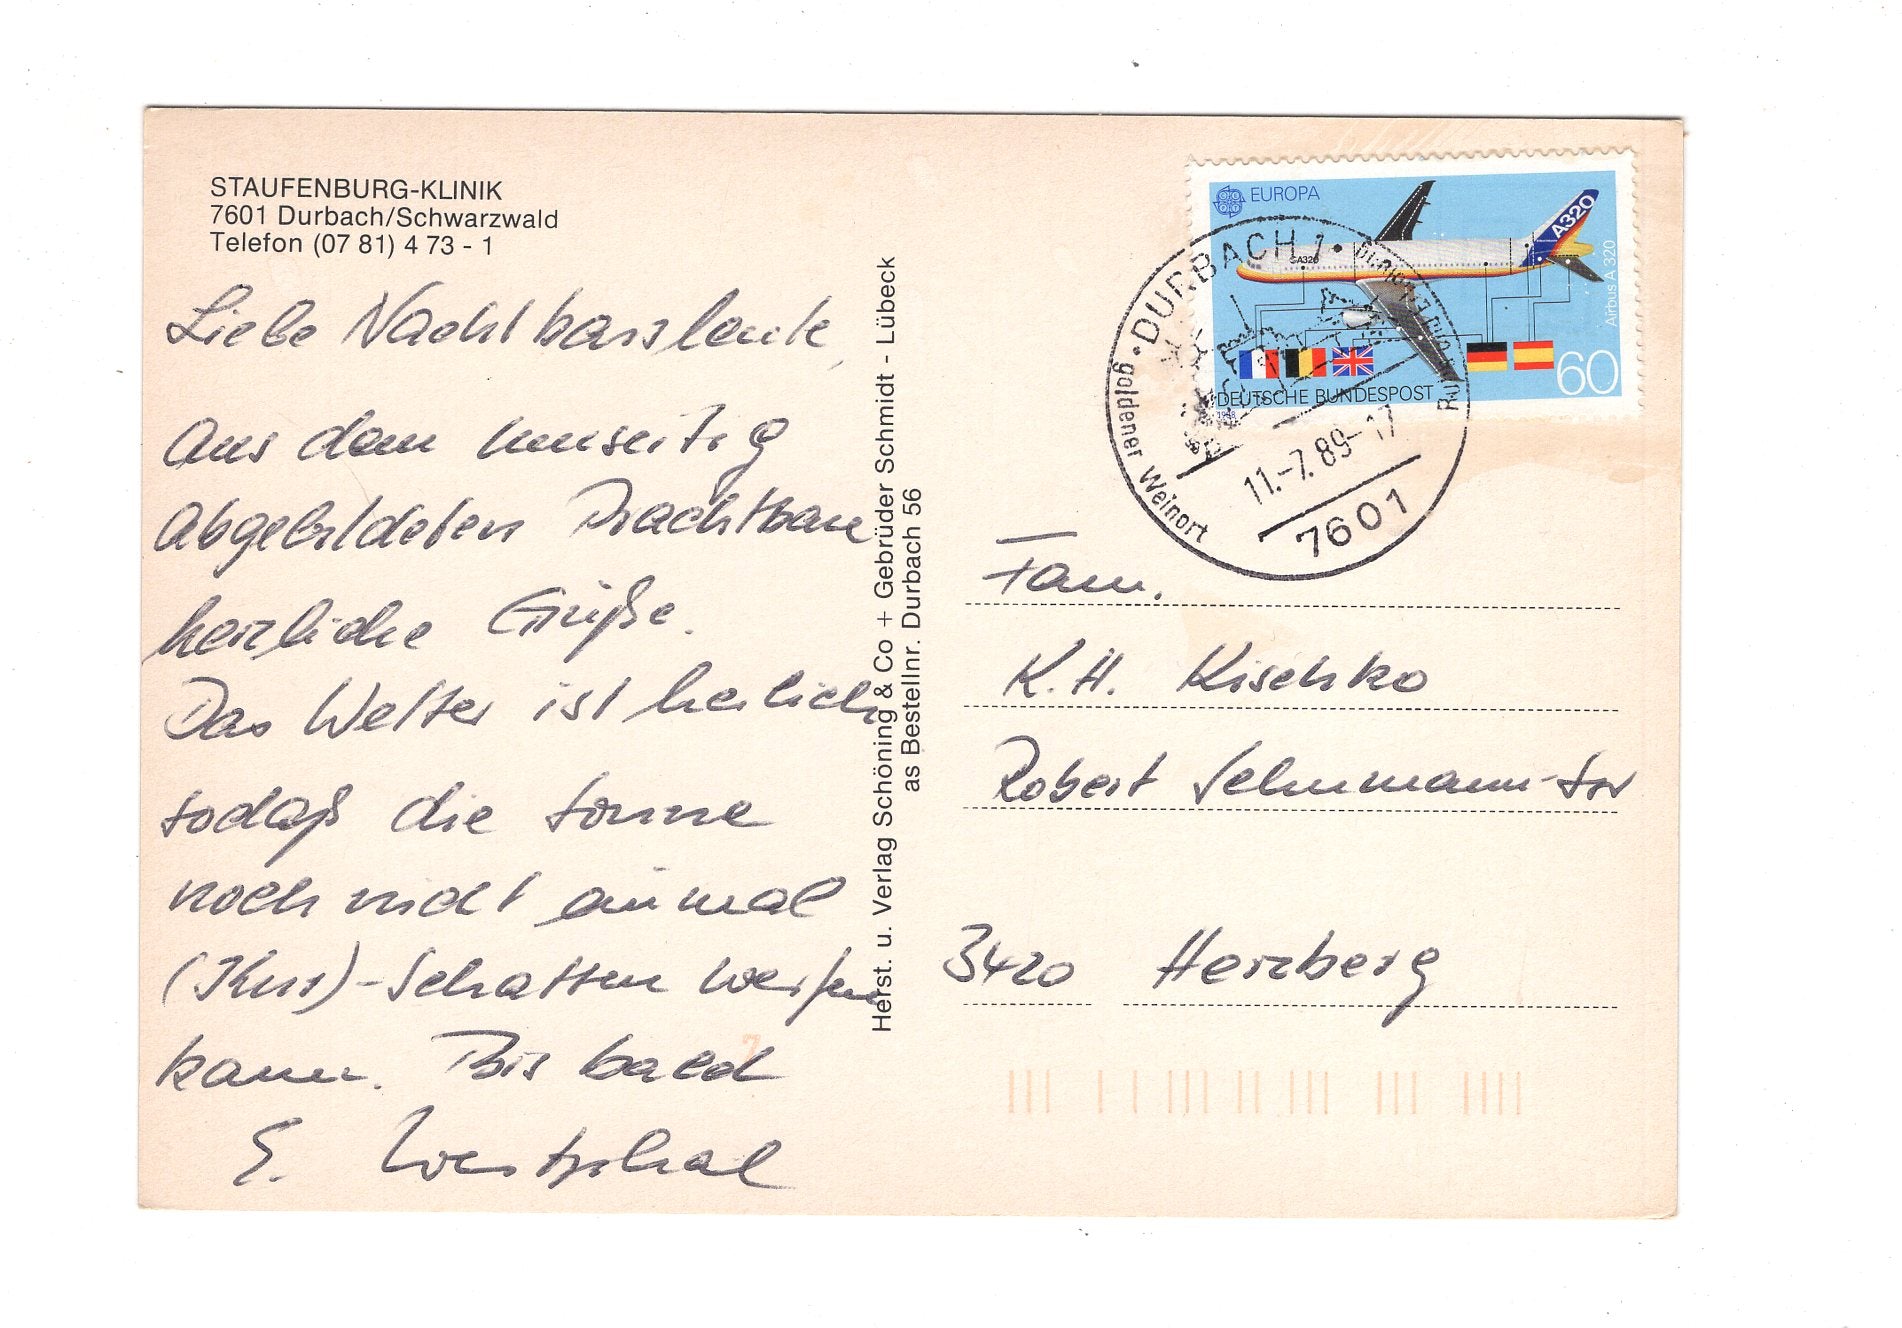 STAUFENBURG-KLINIK
7601 Durbach/Schwarzwald
Telefon (07 81) 4 73 - 1
Liebe Nachtbarsleute,
Aus dem umseitig
abgebildeten Prachtbau
herzliche Grüße.
Das Wetter ist herlich
sodaß die Sonne
noch nicht einmal
(Kur)-Schatten werfen
kann. Bis bald
E. Westphal
Herst. u. Verlag Schöning & Co + Gebrüder Schmidt - Lübeck
as Bestellnr. Durbach 56
EUROPA
A320
Airbus A 320
60
DEUTSCHE BUNDESPOST
1988
DURBACH 1
goldener Weinort
11.-7.89-17
7601
Fam.
K.H. Kischko
Robert Schumann-Str
3420 Herzberg
7